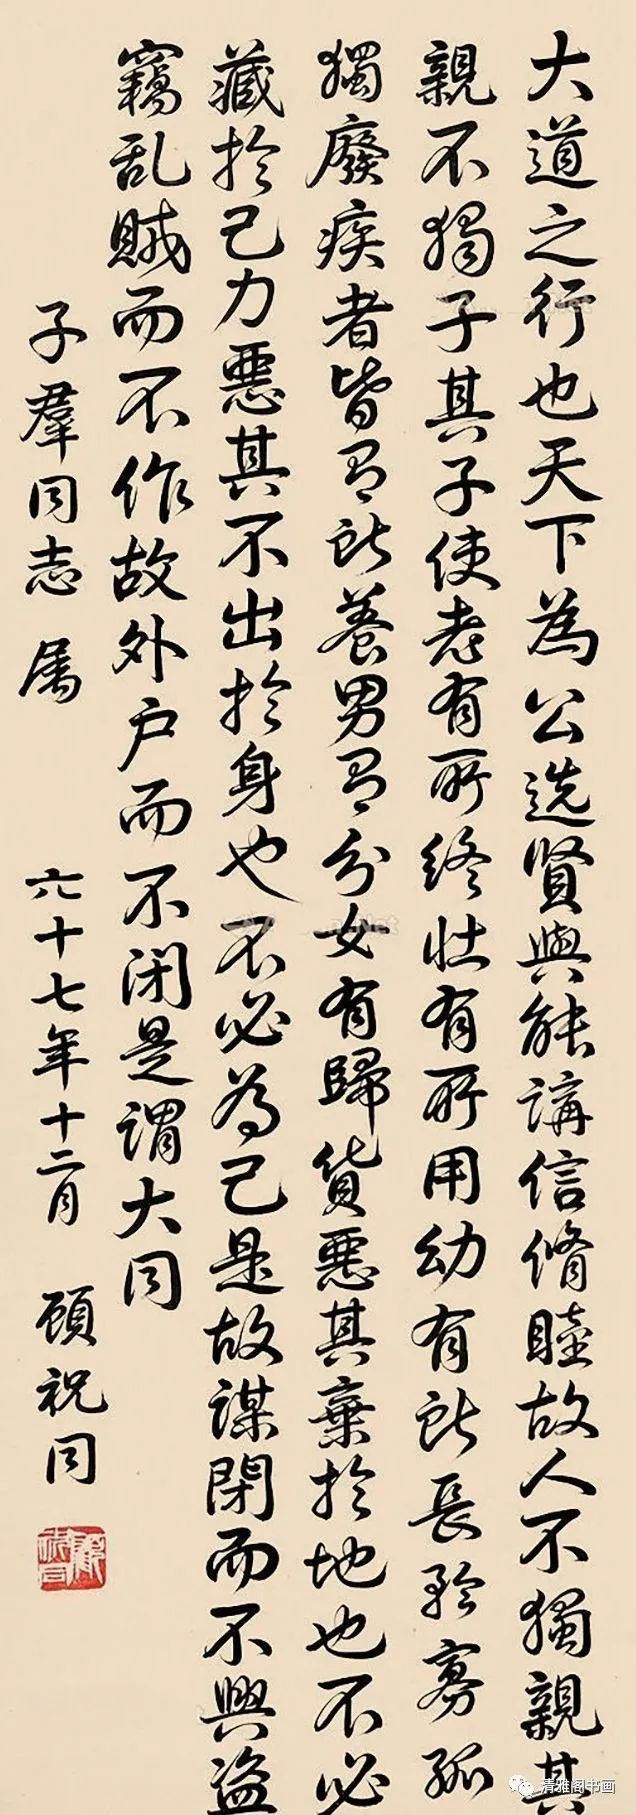 大道之行也天下為公选賢與能講信脩睦故人不獨親其
親不獨子其子使老有所終壮有所用幼有所長矜寡孤
獨廢疾者皆有所養男有分女有歸貨惡其棄於地也不必
藏於己力惡其不出於身也不必為己是故謀閉而不興盜
竊乱賊而不作故外户而不闭是謂大同
子羣同志属 六十七年十二月 顧祝同
清雅阁书画